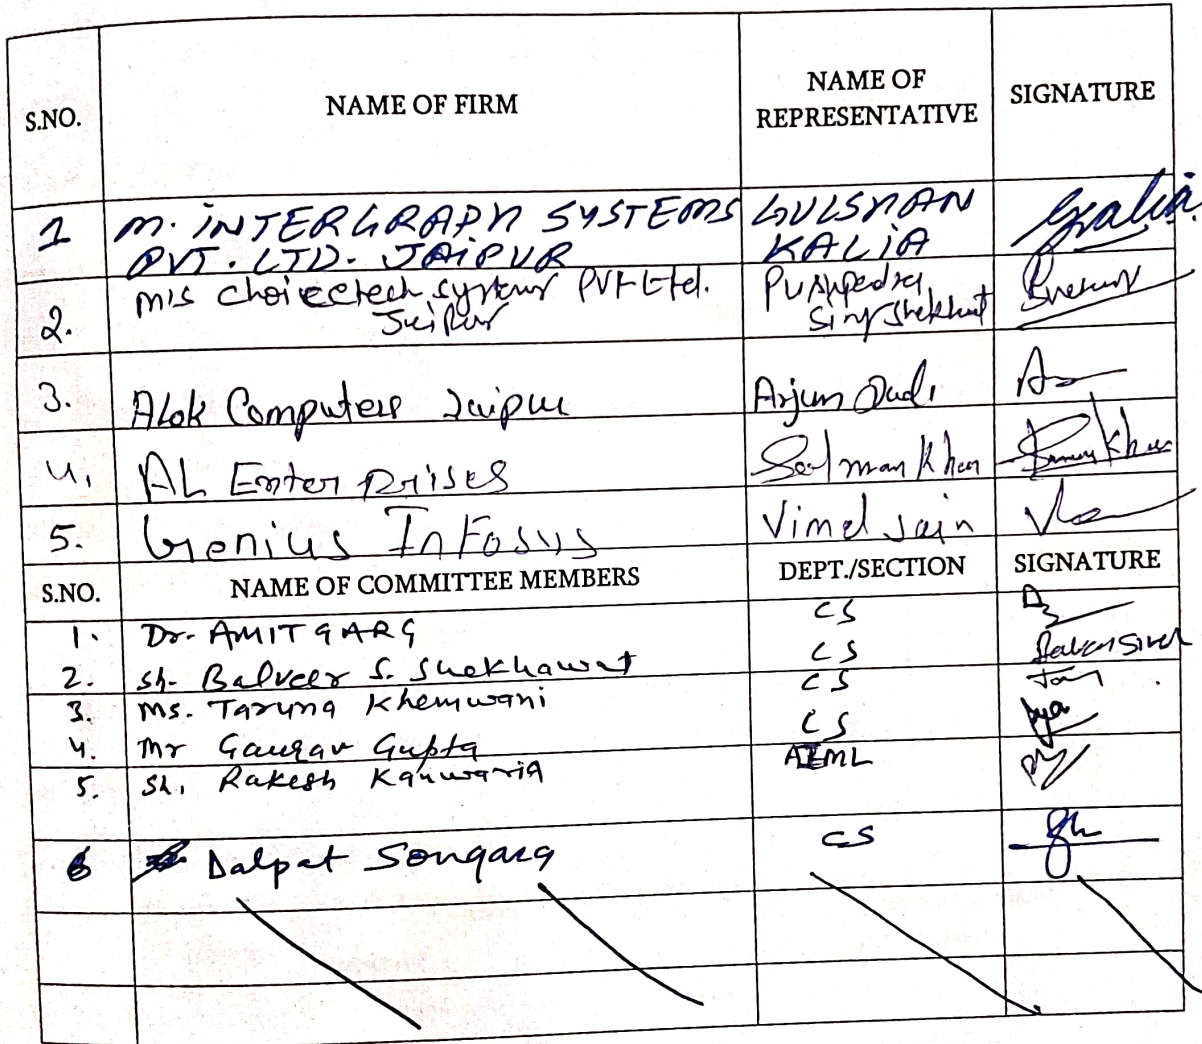 S.NO. NAME OF FIRM NAME OF REPRESENTATIVE SIGNATURE
1 M. INTERGRAPH SYSTEMS GULSHAN
PVT. LTD. JAIPUR KALIA
2. M/s Choicetech systems Pvt Ltd. Pushpedra
Jaipur Singh Shekhawat
3. Alok Computers Jaipur Arjun
4. AL Enterprises Salman Khan
5. Genius Infosys Vimal Jain
S.NO. NAME OF COMMITTEE MEMBERS DEPT./SECTION SIGNATURE
1. Dr. AMIT GARG CS
2. Sh. Balveer S. Shekhawat CS
3. Ms. Taruna Khemwani CS
4. Mr Gaurav Gupta CS
5. Sh. Rakesh Kanwaria AIML
6 Dalpat Songara CS